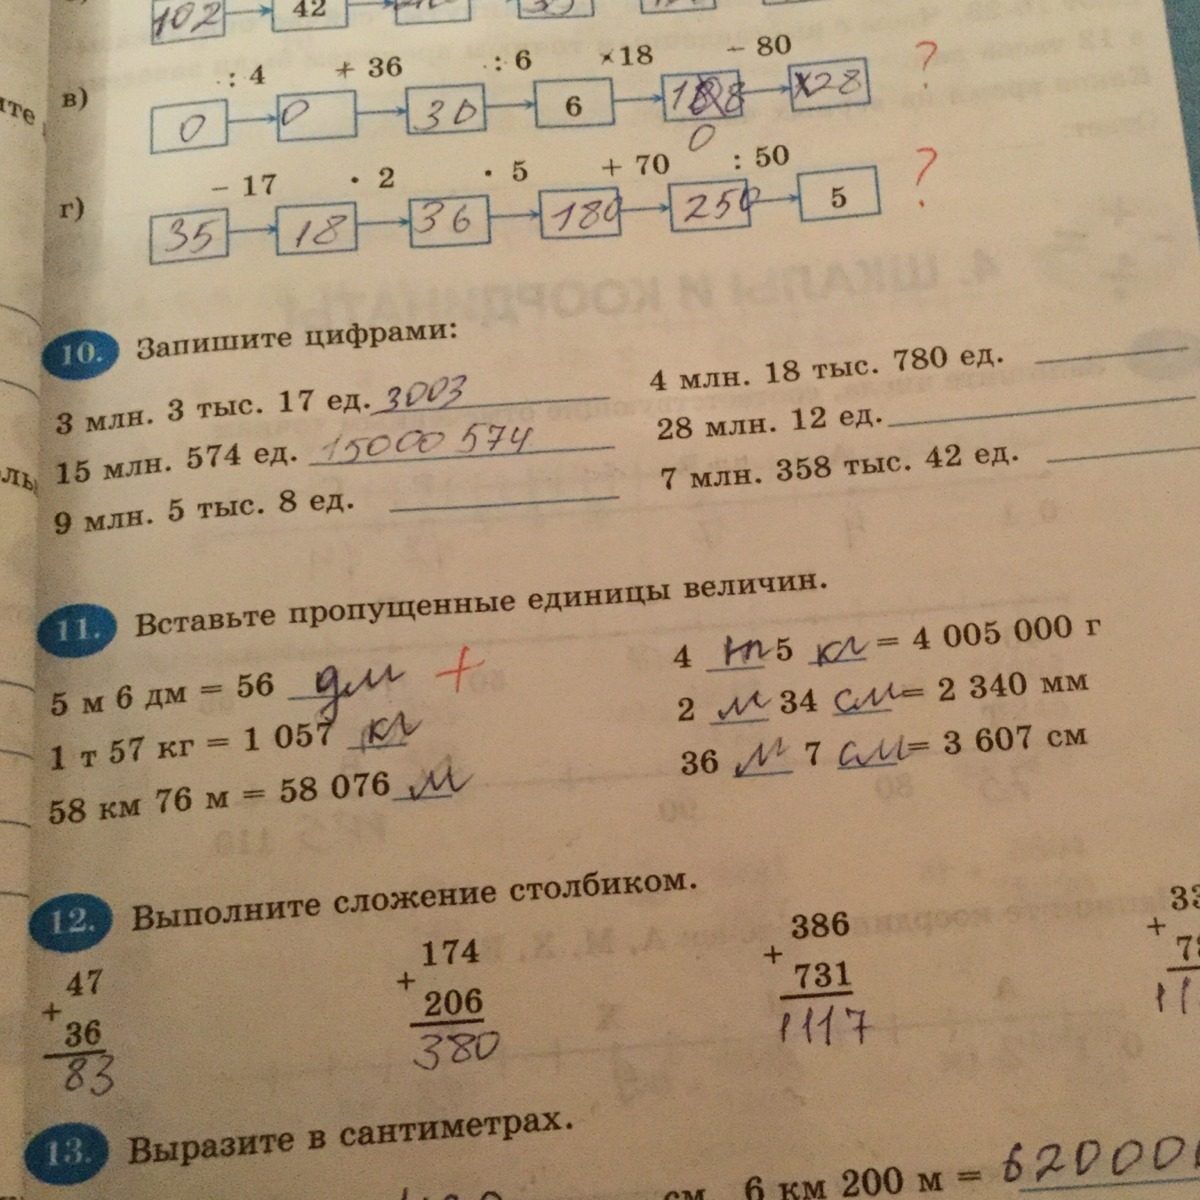 102 42 35
: 4 + 36 : 6 ×18 − 80 ?
в) 0 0 30 6 28
0
− 17 · 2 · 5 + 70 : 50 ?
г) 35 18 36 180 250 5
10. Запишите цифрами:
3 млн. 3 тыс. 17 ед. 3003 4 млн. 18 тыс. 780 ед.
15 млн. 574 ед. 15000 574 28 млн. 12 ед.
9 млн. 5 тыс. 8 ед. 7 млн. 358 тыс. 42 ед.
11. Вставьте пропущенные единицы величин.
5 м 6 дм = 56 дм + 4 т 5 кг = 4 005 000 г
1 т 57 кг = 1 057 кг 2 м 34 см = 2 340 мм
58 км 76 м = 58 076 м 36 м 7 см = 3 607 см
12. Выполните сложение столбиком.
47 174 386 33
+ + + +
36 206 731 7
83 380 1117 11
13. Выразите в сантиметрах.
см 6 км 200 м = 620000